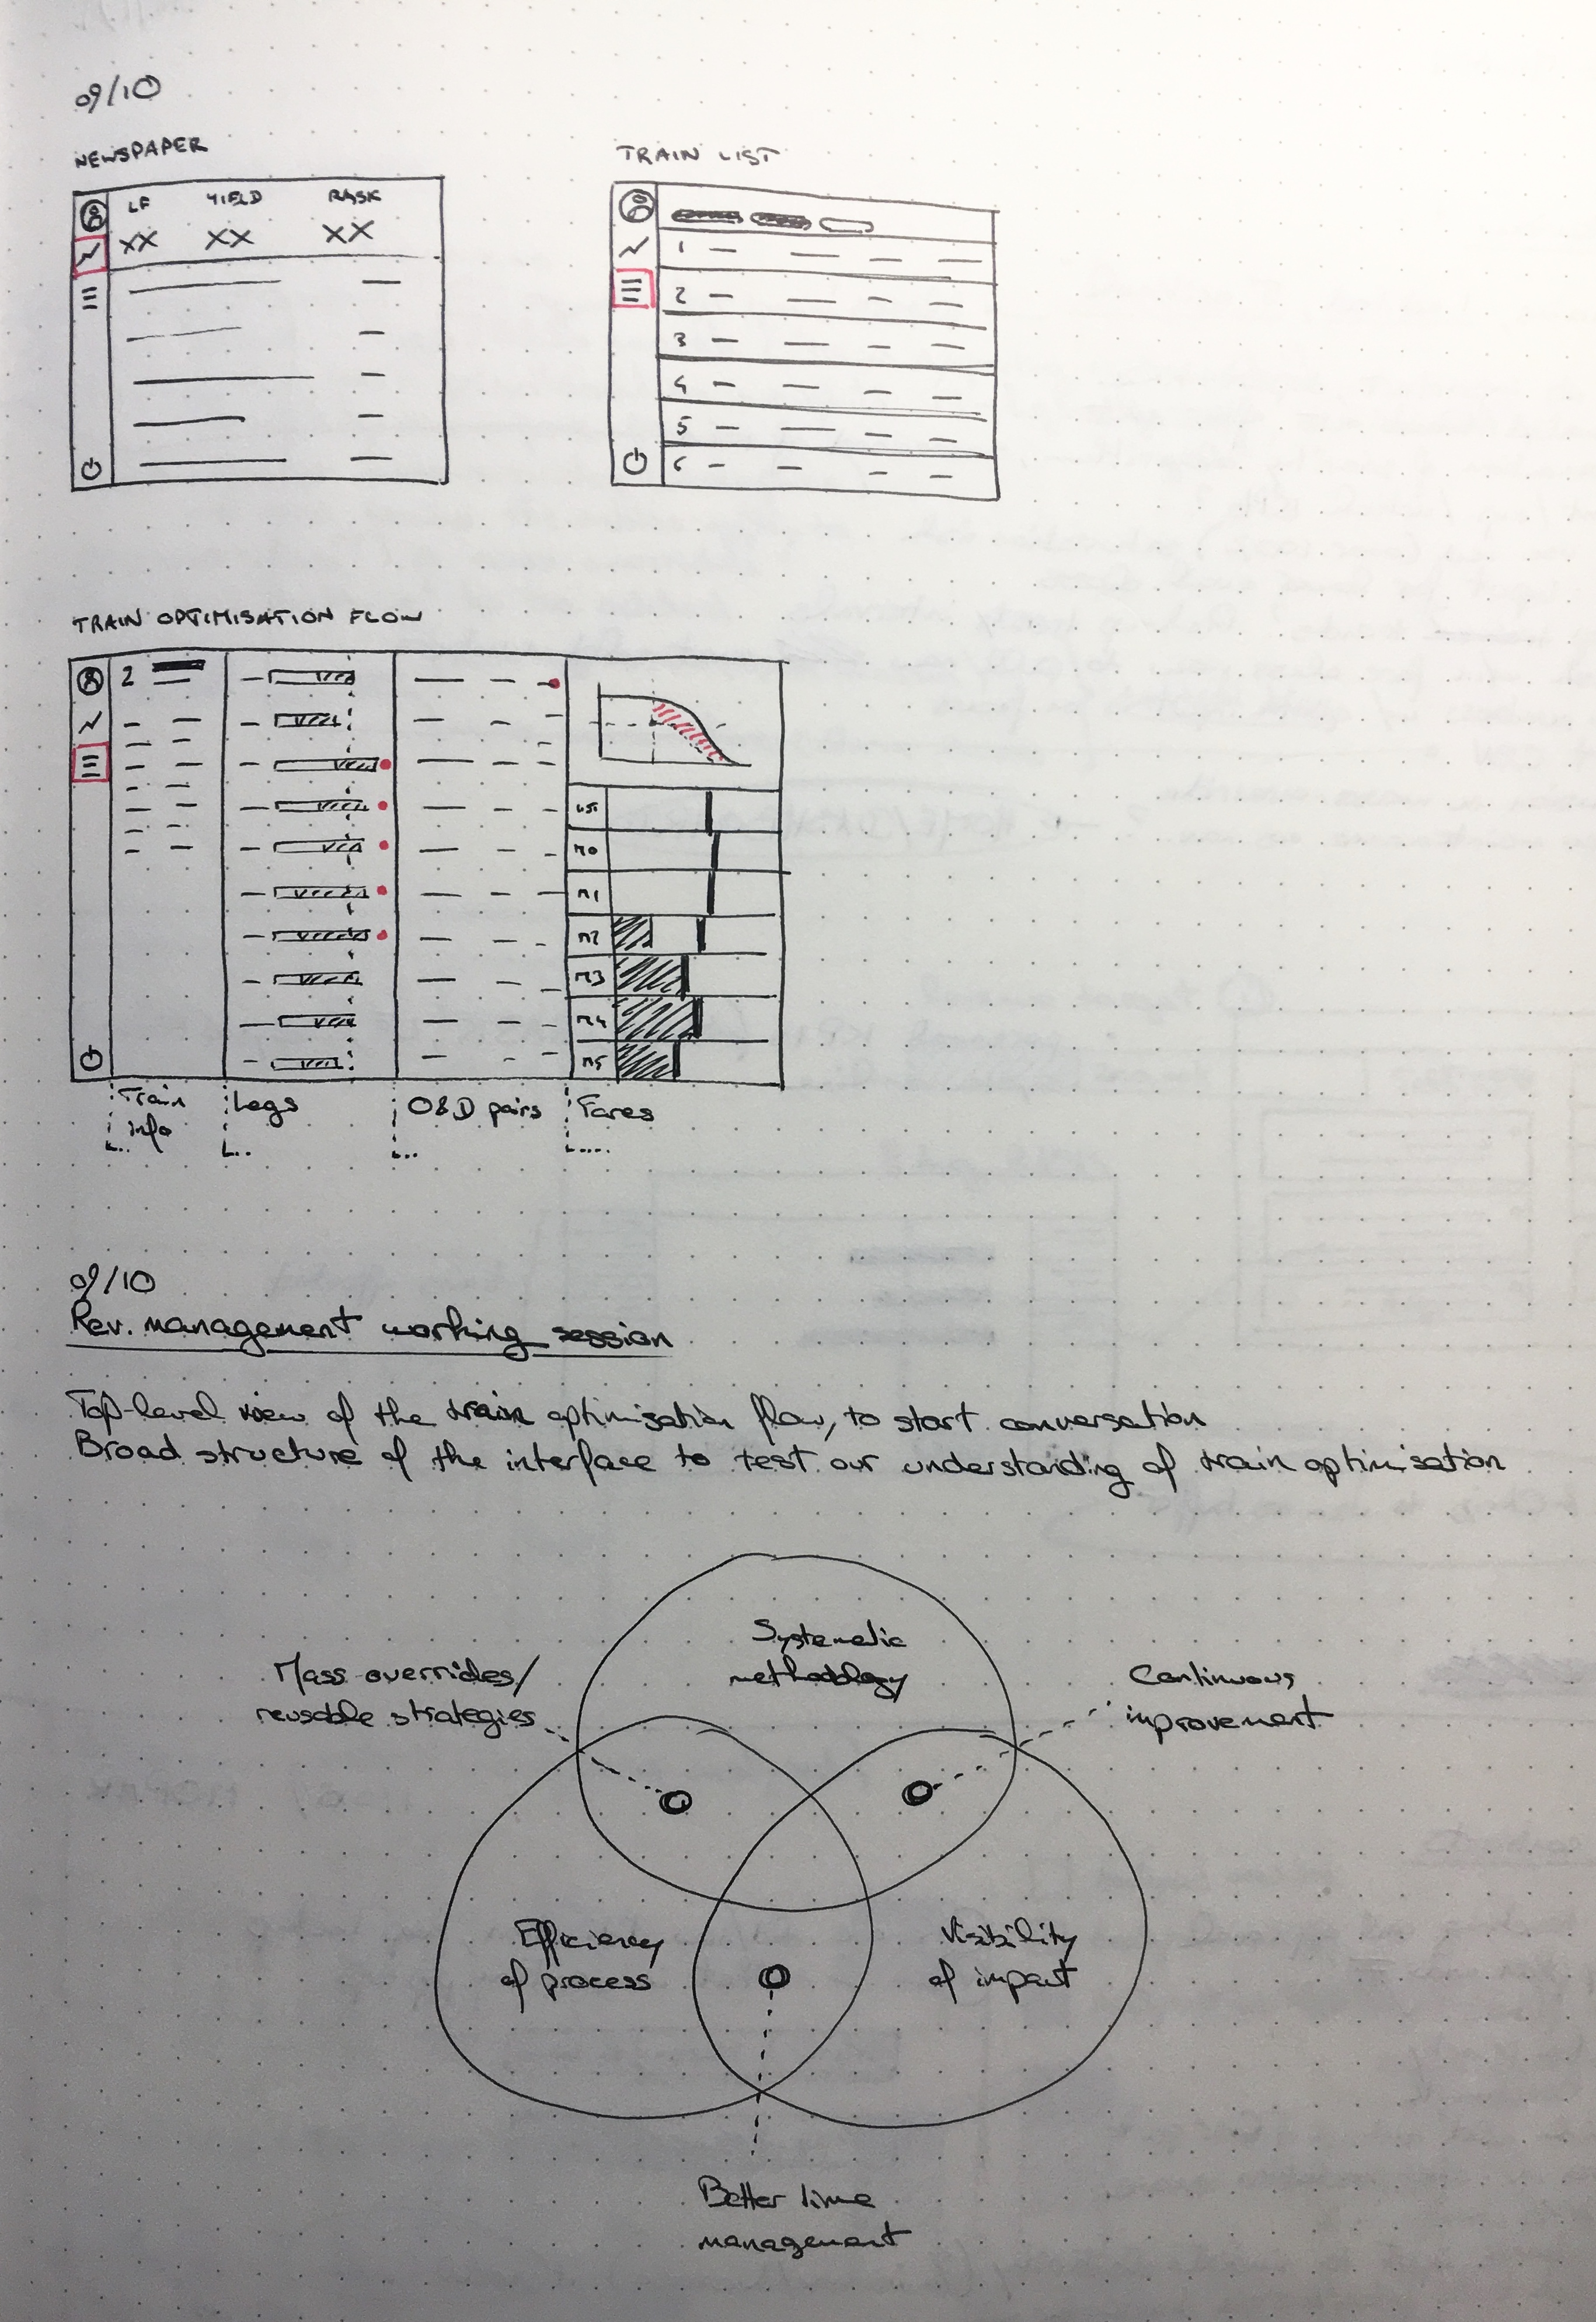 09/10
NEWSPAPER
LF YIELD RASK
XX XX XX
TRAIN LIST
1
2
3
4
5
6
TRAIN OPTIMISATION FLOW
2
M0
M1
M2
M3
M4
M5
Train info
Legs
O&D pairs
Fares
09/10
Rev. management working session
Top-level view of the train optimisation flow, to start conversation
Broad structure of the interface to test our understanding of train optimisation
Systematic
methodology
Mass overrides/
reusable strategies
Continuous
improvement
Efficiency
of process
Visibility
of impact
Better time
management